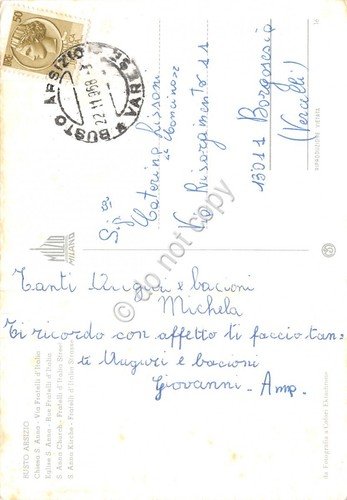 50
BUSTO ARSIZIO
22 11 1968
* VARESE *
Sig.ra
Caterina Lissoni
in Moncino
Via Risorgimento 11
13011 Borgosesia
(Vercelli)
MILANO
Tanti Auguri e bacioni
Michela
Ti ricordo con affetto ti faccio tan-
ti Auguri e bacioni
Giovanni -
BUSTO ARSIZIO
Chiesa S. Anna - Via Fratelli d'Italia
Eglise S. Anna - Rue Fratelli d'Italia
S. Anna Church - Fratelli d'Italia Street
S. Anna Kirche - Fratelli d'Italia Strasse
RIPRODUZIONE VIETATA
da Fotografia a Colori Ektachrome
do not copy